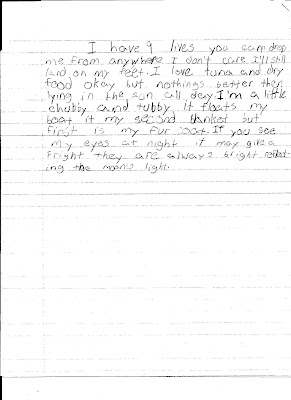 I have 9 lives you can drop
me from anywhere I don't care I'll still
land on my feet. I love tuna and dry
food okay but nothings better then
lying in the son all day. I'm a little
chubby and tubby it floats my
boat it my second blanket but
first is my fur coat. If you see
my eyes at night it may give a
fright they are always bright reflect
ing the moons light.